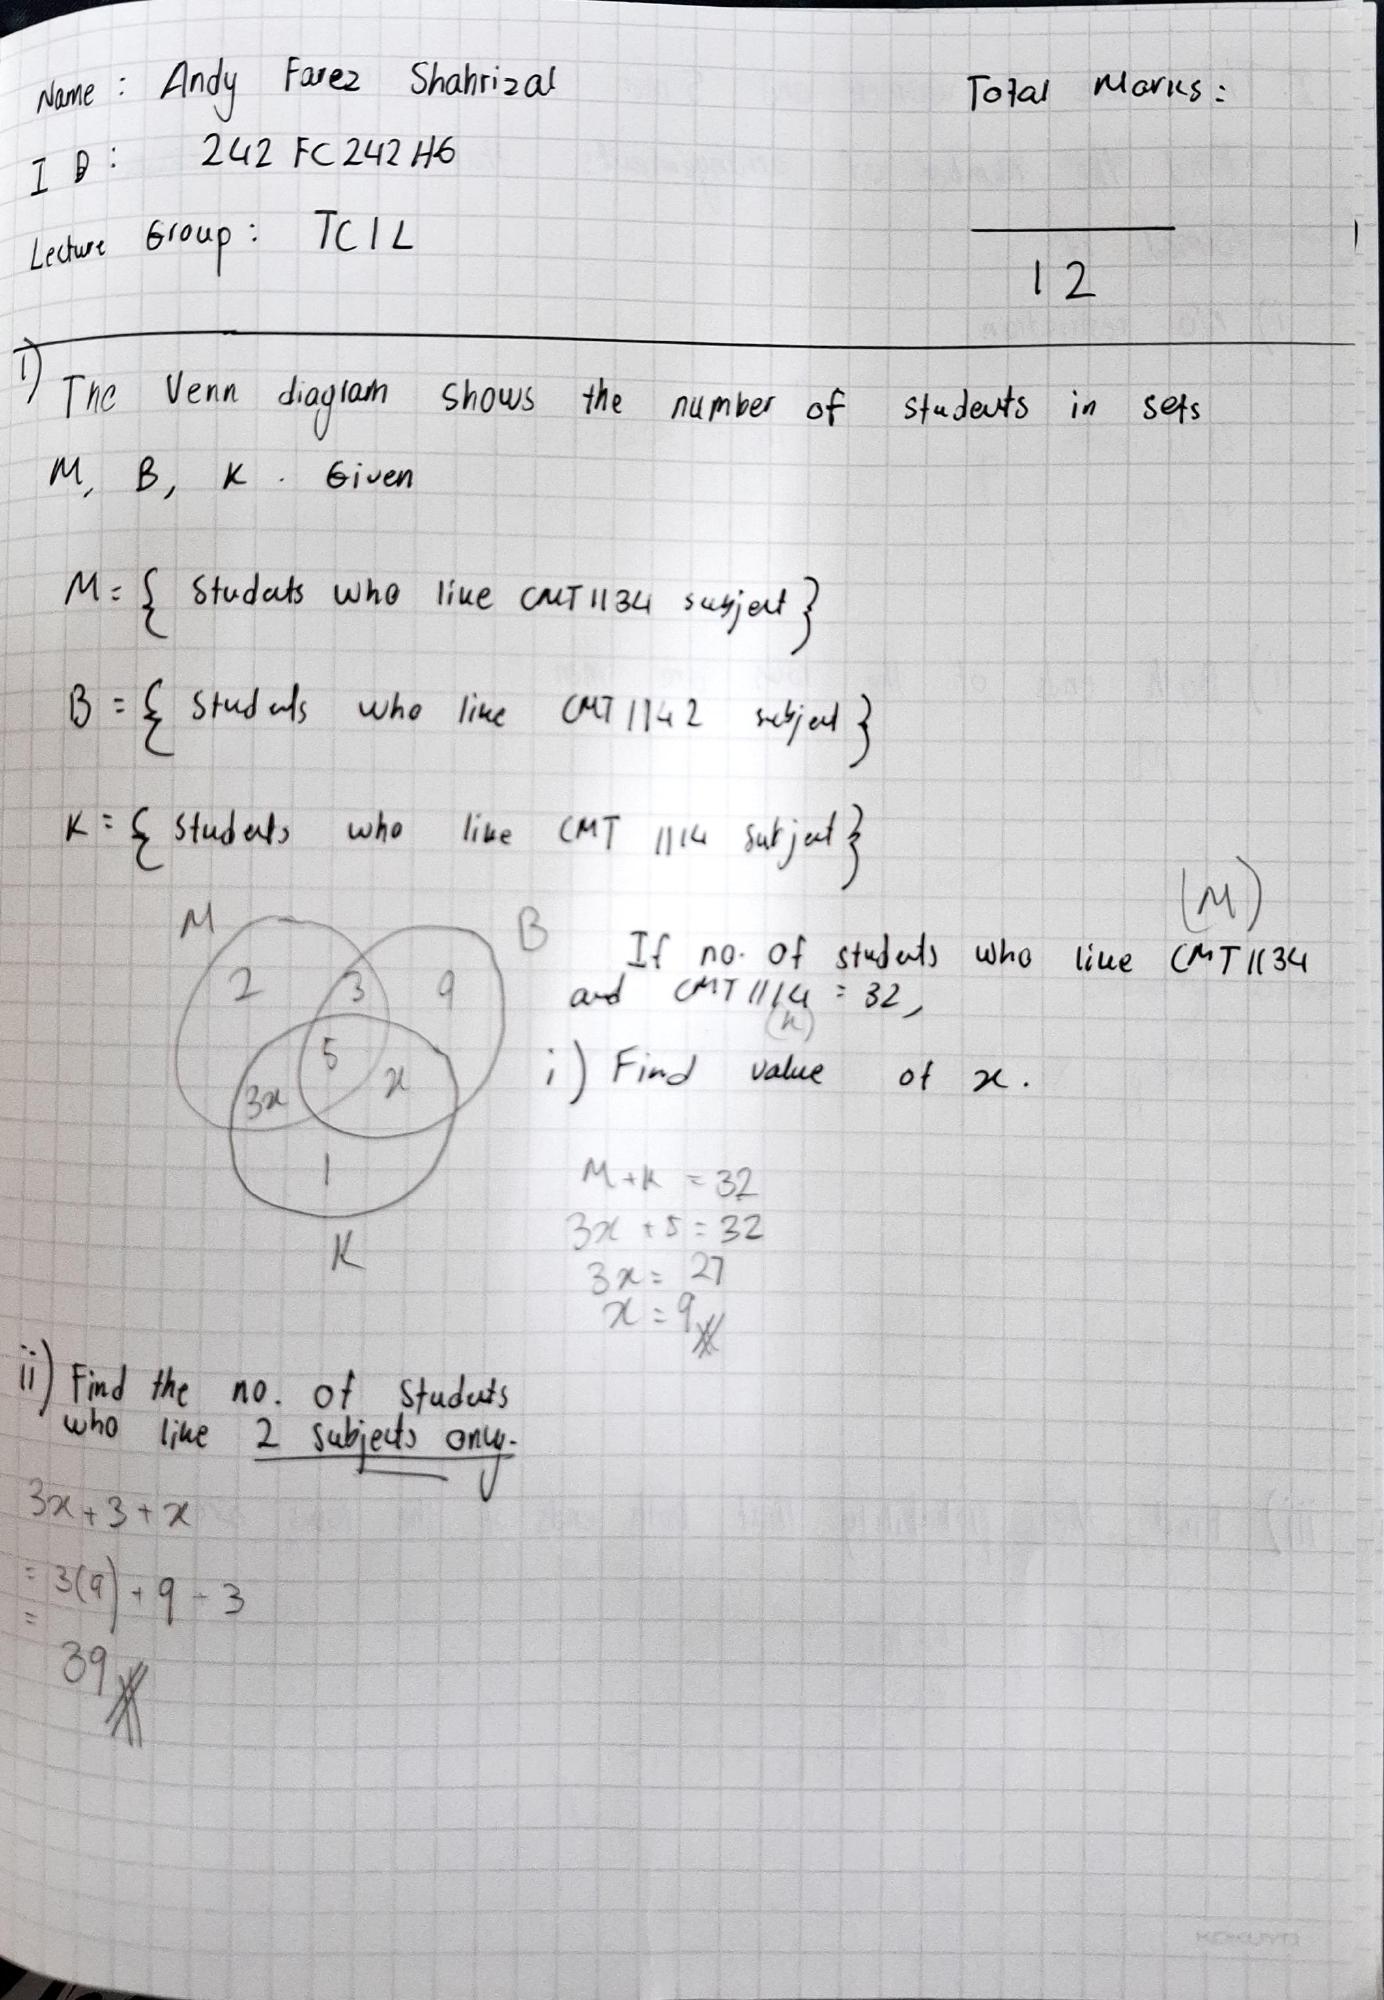 Name : Andy Farez Shahrizal
Total Marks :
ID : 242FC242H6
Lecture Group : TC1L
12
1) The Venn diagram shows the number of students in sets
M, B, K . Given
M = { Students who like CMT1134 subject }
B = { Students who like CMT1142 subject }
K = { Students who like CMT 1114 subject }
M
B
2
3
9
5
3x
x
1
K
(M)
If no. of students who like CMT1134
and CMT1114 = 32,
(K)
i) Find value of x.
M + K = 32
3x + 5 = 32
3x = 27
x = 9
ii) Find the no. of students
who like 2 subjects only.
3x + 3 + x
= 3(9) + 9 + 3
=
39